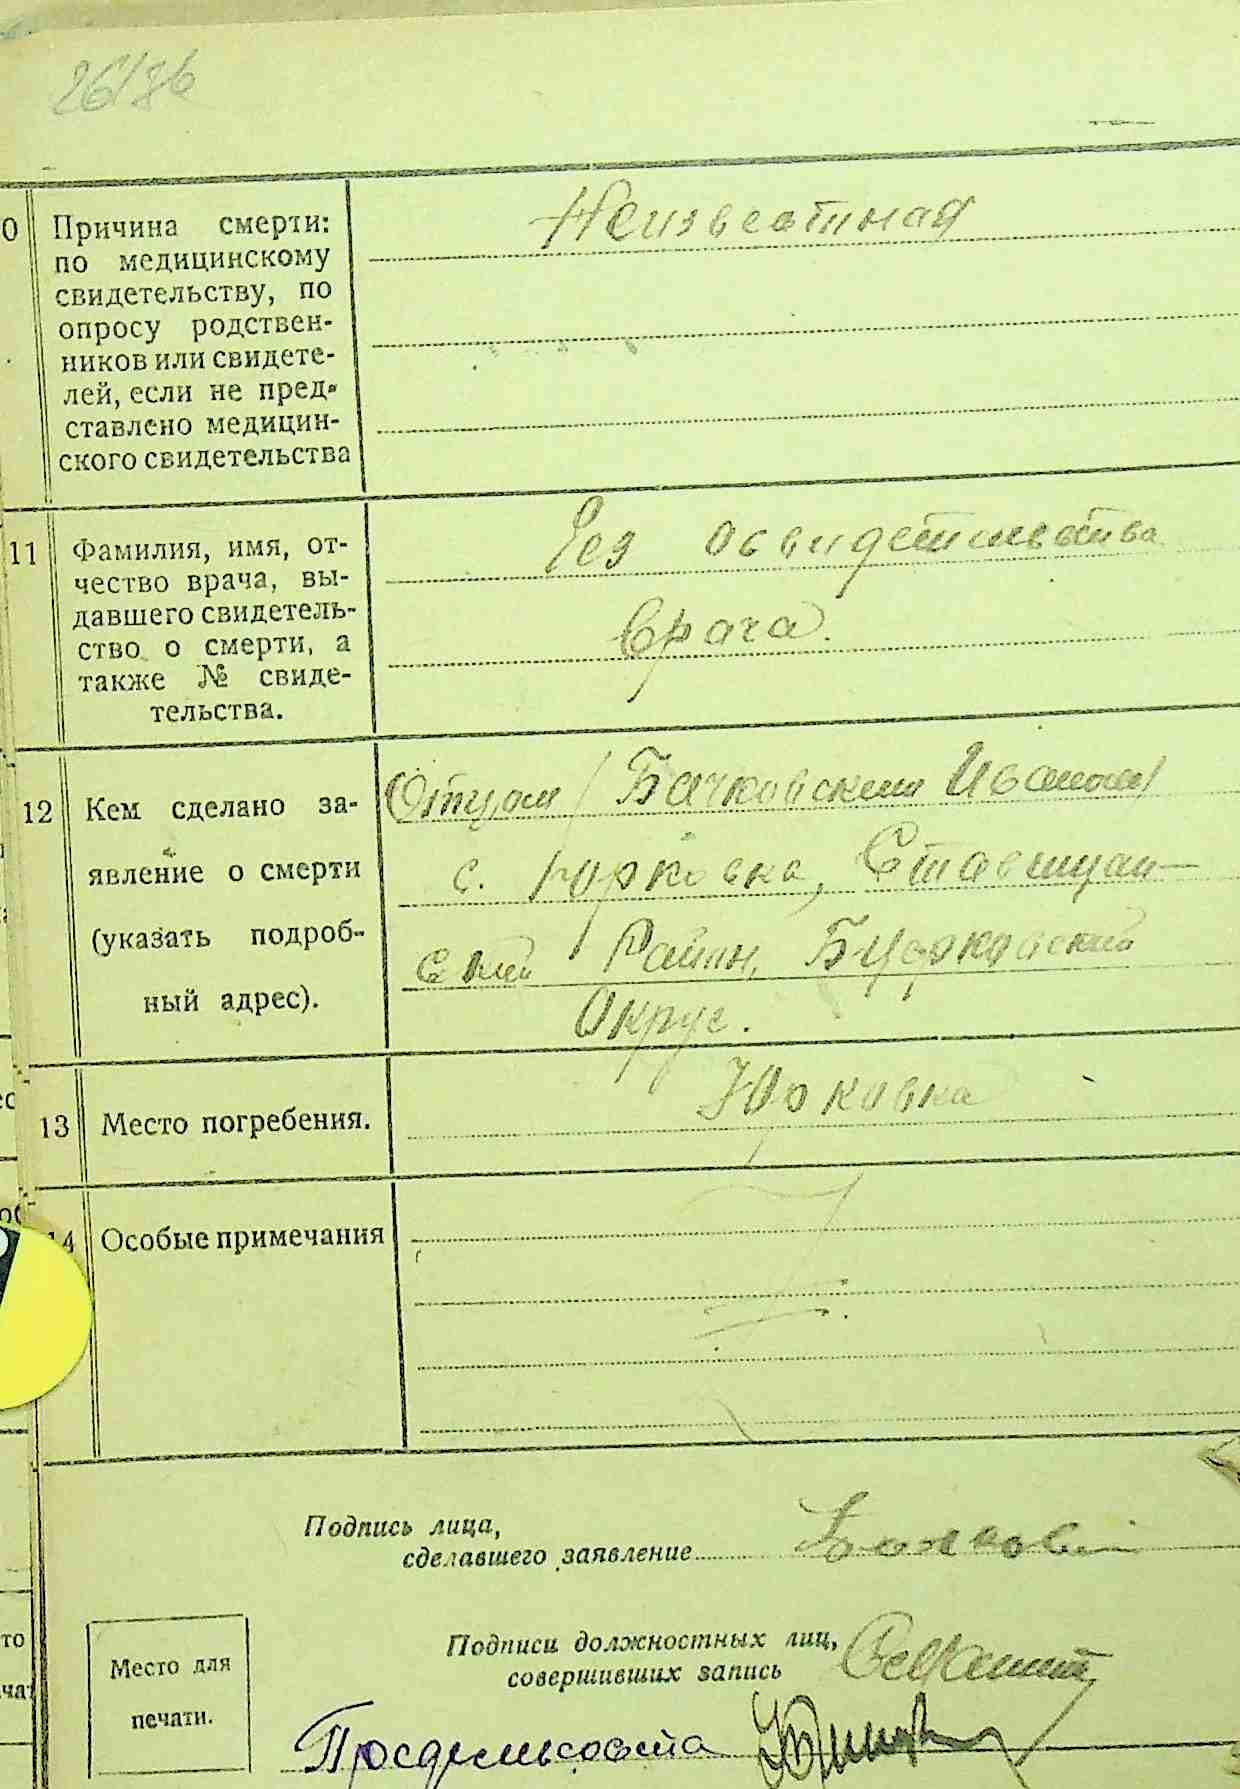 26/36
0 Причина смерти:
по медицинскому
свидетельству, по
опросу родствен-
ников или свидете-
лей, если не пред-
ставлено медицин-
ского свидетельства
Неизвестная
11 Фамилия, имя, от-
чество врача, вы-
давшего свидетель-
ство о смерти, а
также № свиде-
тельства.
Без освидетельства
врача.
12 Кем сделано за-
явление о смерти
(указать подроб-
ный адрес).
Отцом / Бачковским Иваном /
с. Юрковка, Ставищан-
ский Район,
Округ.
13 Место погребения.
Юрковка
14 Особые примечания
Подпись лица,
сделавшего заявление
Подписи должностных лиц,
совершивших запись
Место для
печати.
Предсельсовета